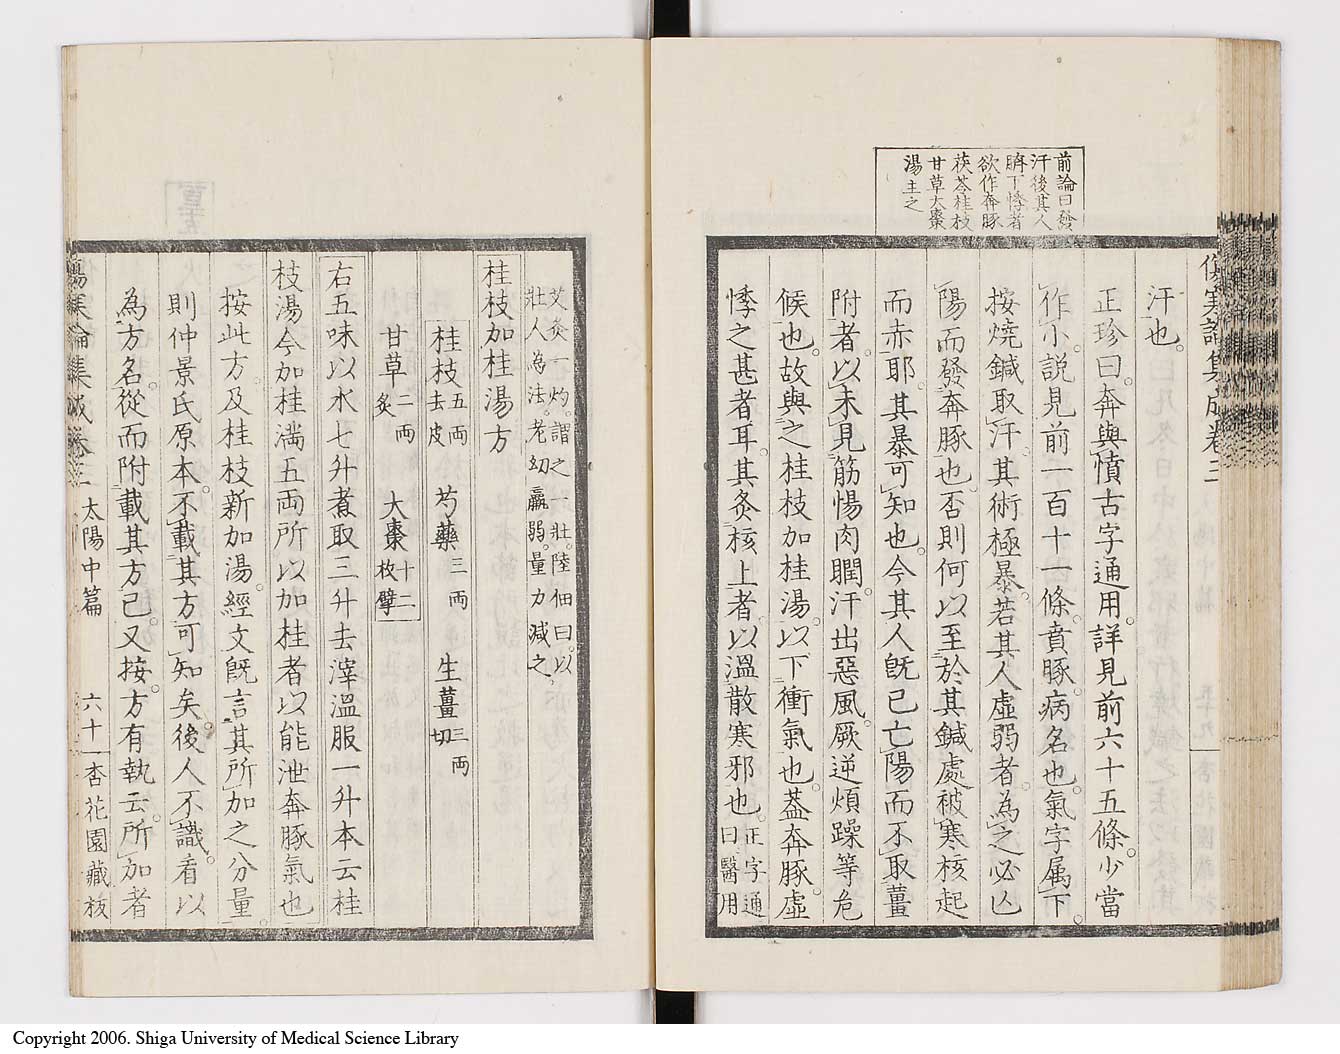 前論曰發
汗後其人
臍下悸者
欲作奔豚
茯苓桂枝
甘草大棗
湯主之
傷寒論集成卷三
汗也。
正珍曰。奔與憤古字通用。詳見前六十五條。少當
作小。說見前一百十一條。賁豚病名也。氣字属下
按燒鍼取汗。其術極暴。若其人虛弱者。為之必亾
陽而發奔豚也。否則何以至於其鍼處被寒核起
而赤耶。其暴可知也。今其人既已亡陽而不取薑
附者。以未見筋惕肉瞤。汗出惡風。厥逆煩躁等危
候也。故與之桂枝加桂湯。以下衝氣也。蓋奔豚。虛
悸之甚者耳。其灸核上者。以溫散寒邪也。正字通
曰醫用
艾灸一灼。謂之一壯。陸佃曰。以
壯人為法。老幼羸弱。量力減之
桂枝加桂湯方
桂枝五兩去皮 芍藥三兩 生薑三兩切
甘草二兩炙 大棗十二枚擘
右五味以水七升煮取三升去滓溫服一升本云桂
枝湯今加桂滿五両所以加桂者以能泄奔豚氣也
按此方。及桂枝新加湯。經文既言其所加之分量。
則仲景氏原本。不載其方可知矣。後人不識看以
為方名。從而附載其方已。又按。方有執云。所加者
傷寒論集成卷三 太陽中篇 六十一 杏花園藏板